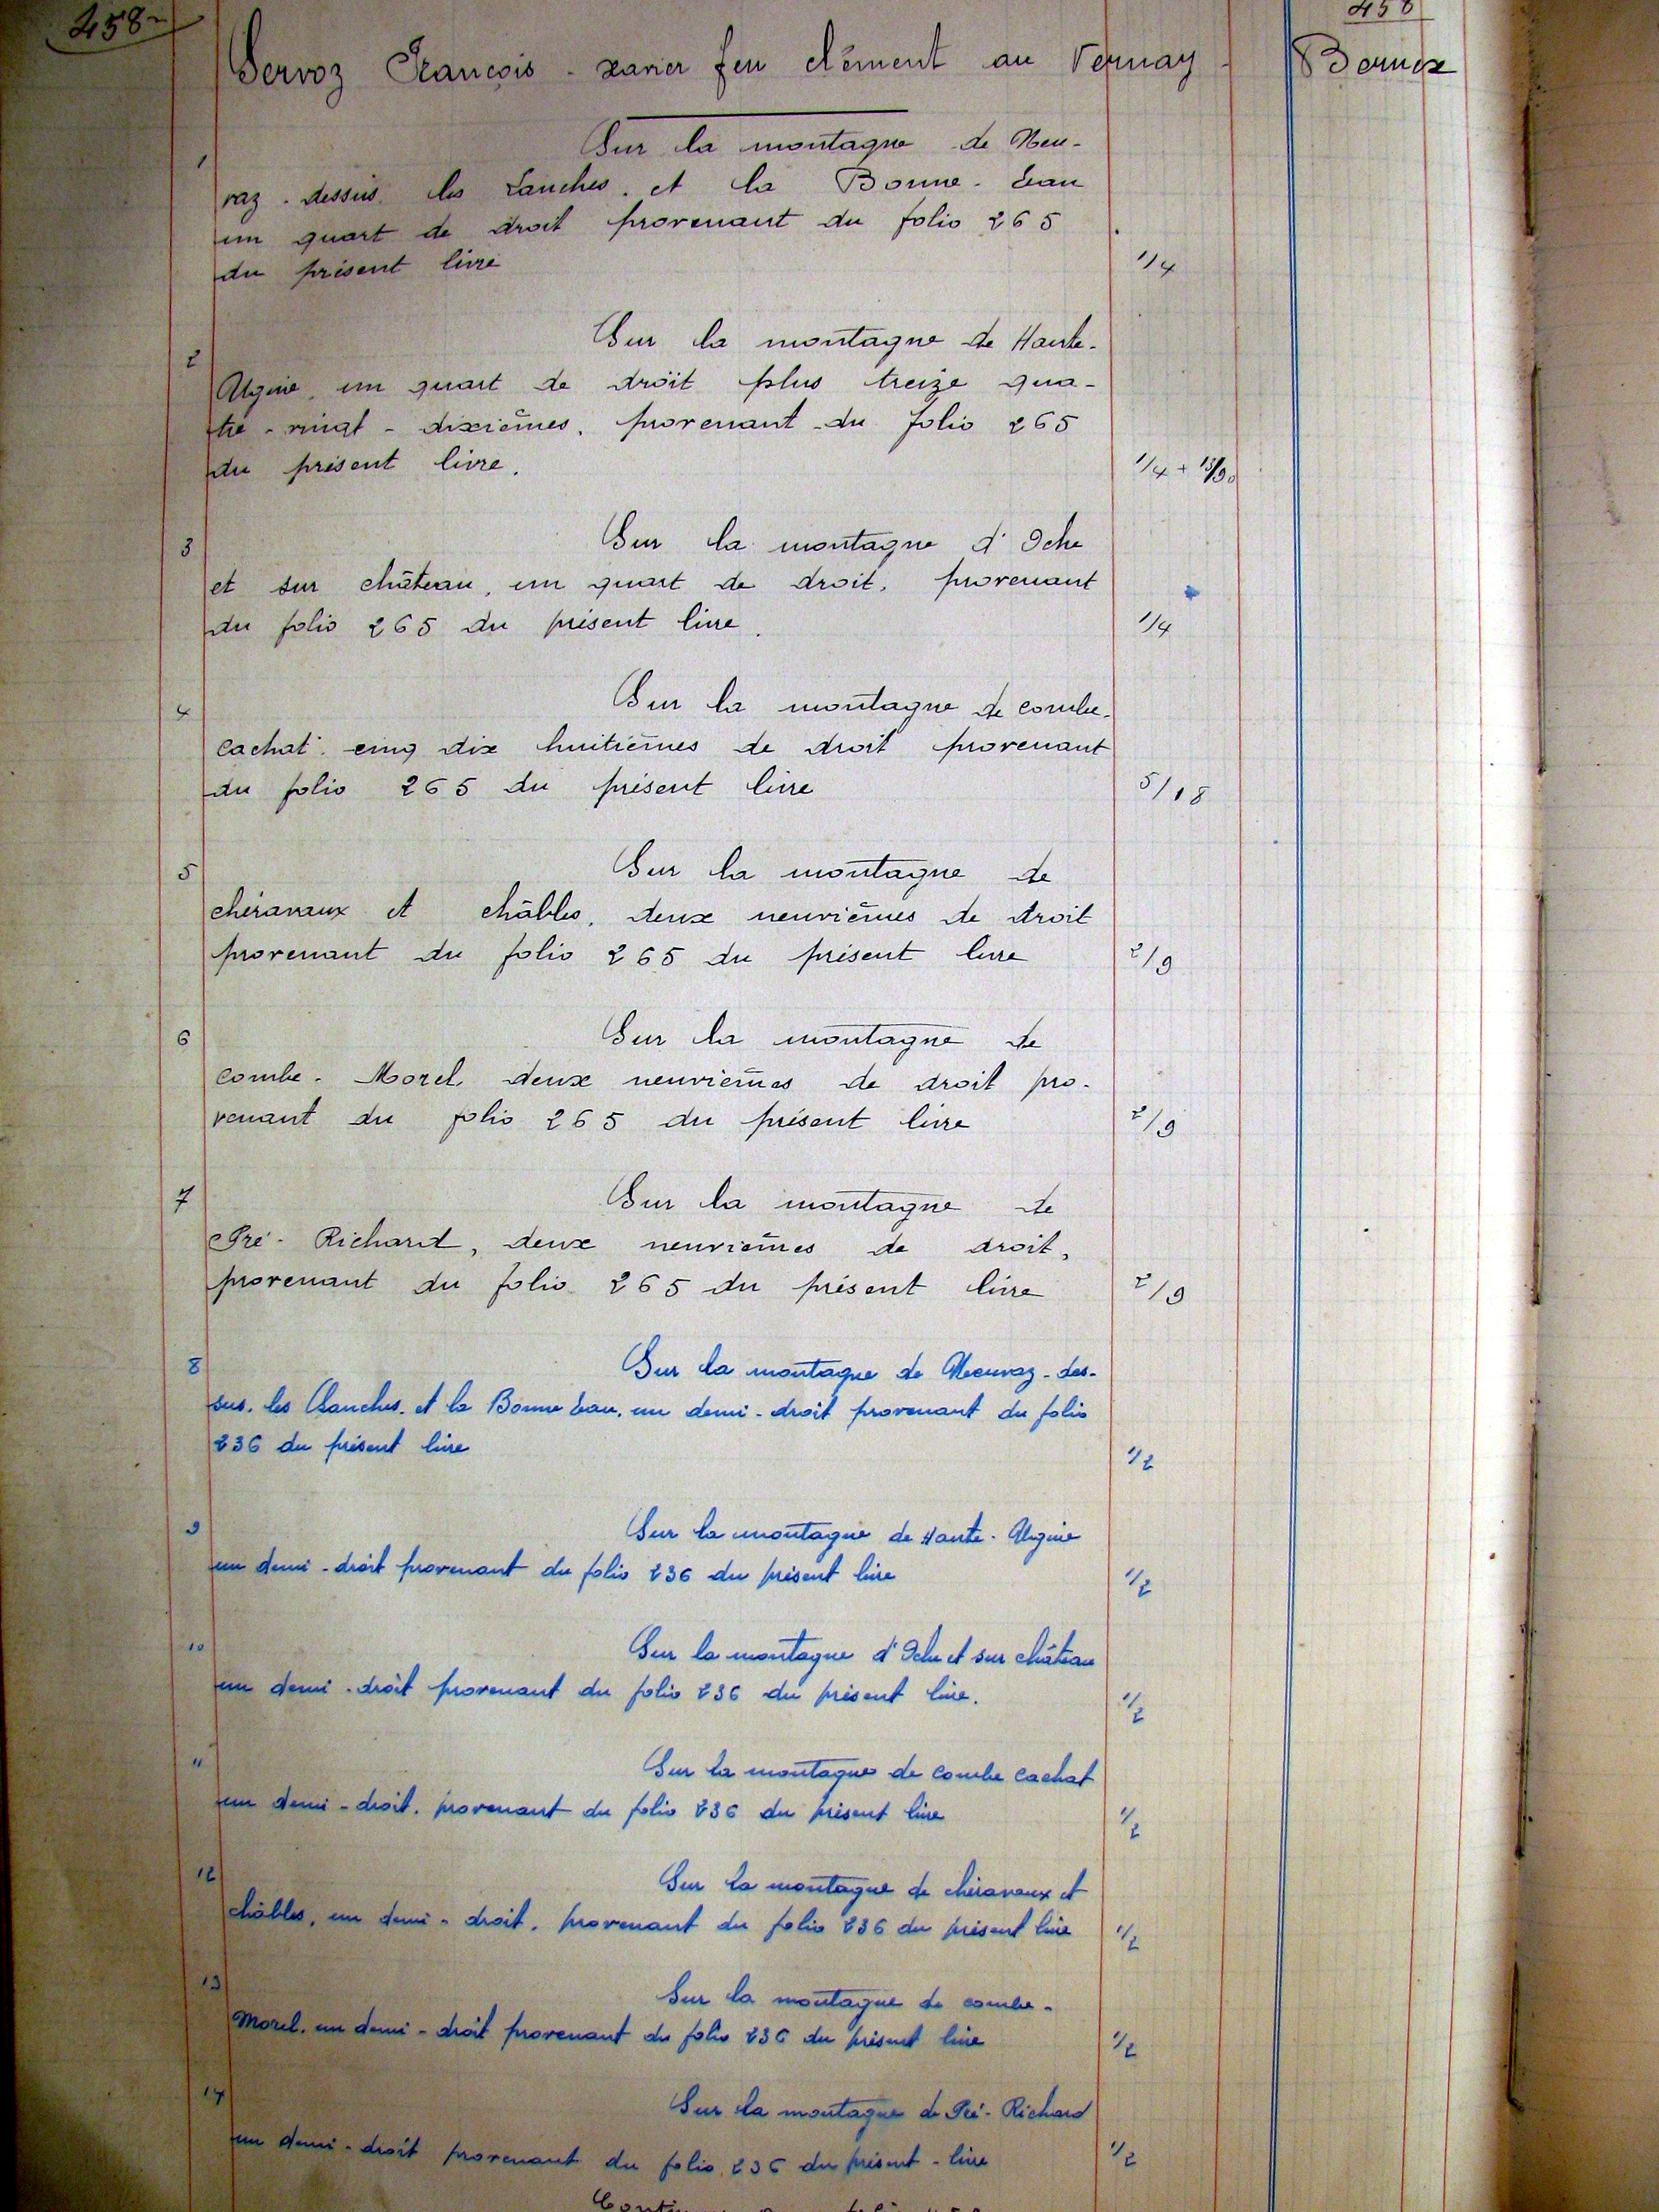 458
458
Servoz François - xavier feu clément au Vernay - Bernex
Sur la montagne de Neu-
1
raz - dessus. les Lanches. et la Bonne - Eau
un quart de droit provenant du folio 265
du présent livre 1/4
Sur la montagne de Haute-
2
Ugine, un quart de droit plus treize qua-
tre - vingt - dixièmes, provenant du folio 265
du présent livre. 1/4 + 13/90
Sur la montagne d'Oche
3
et sur château, un quart de droit, provenant
du folio 265 du présent livre. 1/4
Sur la montagne de combe-
4
cachat. cinq dix huitièmes de droit provenant
du folio 265 du présent livre 5/18
Sur la montagne de
5
chéravaux et châbles, deux neuvièmes de droit
provenant du folio 265 du présent livre 2/9
Sur la montagne de
6
combe - Morel deux neuvièmes de droit pro-
venant du folio 265 du présent livre 2/9
7
Sur la montagne de
Pré - Richard, deux neuvièmes de droit,
provenant du folio 265 du présent livre 2/9
8
Sur la montagne de Neuvaz - des-
sus. les Lanches. et la Bonne eau. un demi - droit provenant du folio
236 du présent livre 1/2
9
Sur la montagne de Haute - Ugine
un demi - droit provenant du folio 236 du présent livre 1/2
10
Sur la montagne d'Oche et sur château
un demi - droit provenant du folio 236 du présent livre. 1/2
11
Sur la montagne de combe cachat
un demi - droit. provenant du folio 236 du présent livre 1/2
12
Sur la montagne de chéravaux et
châbles, un demi - droit, provenant du folio 236 du présent livre 1/2
13
Sur la montagne de combe -
Morel. un demi - droit provenant du folio 236 du présent livre 1/2
14
Sur la montagne de Pré - Richard
un demi - droit provenant du folio 236 du présent - livre 1/2